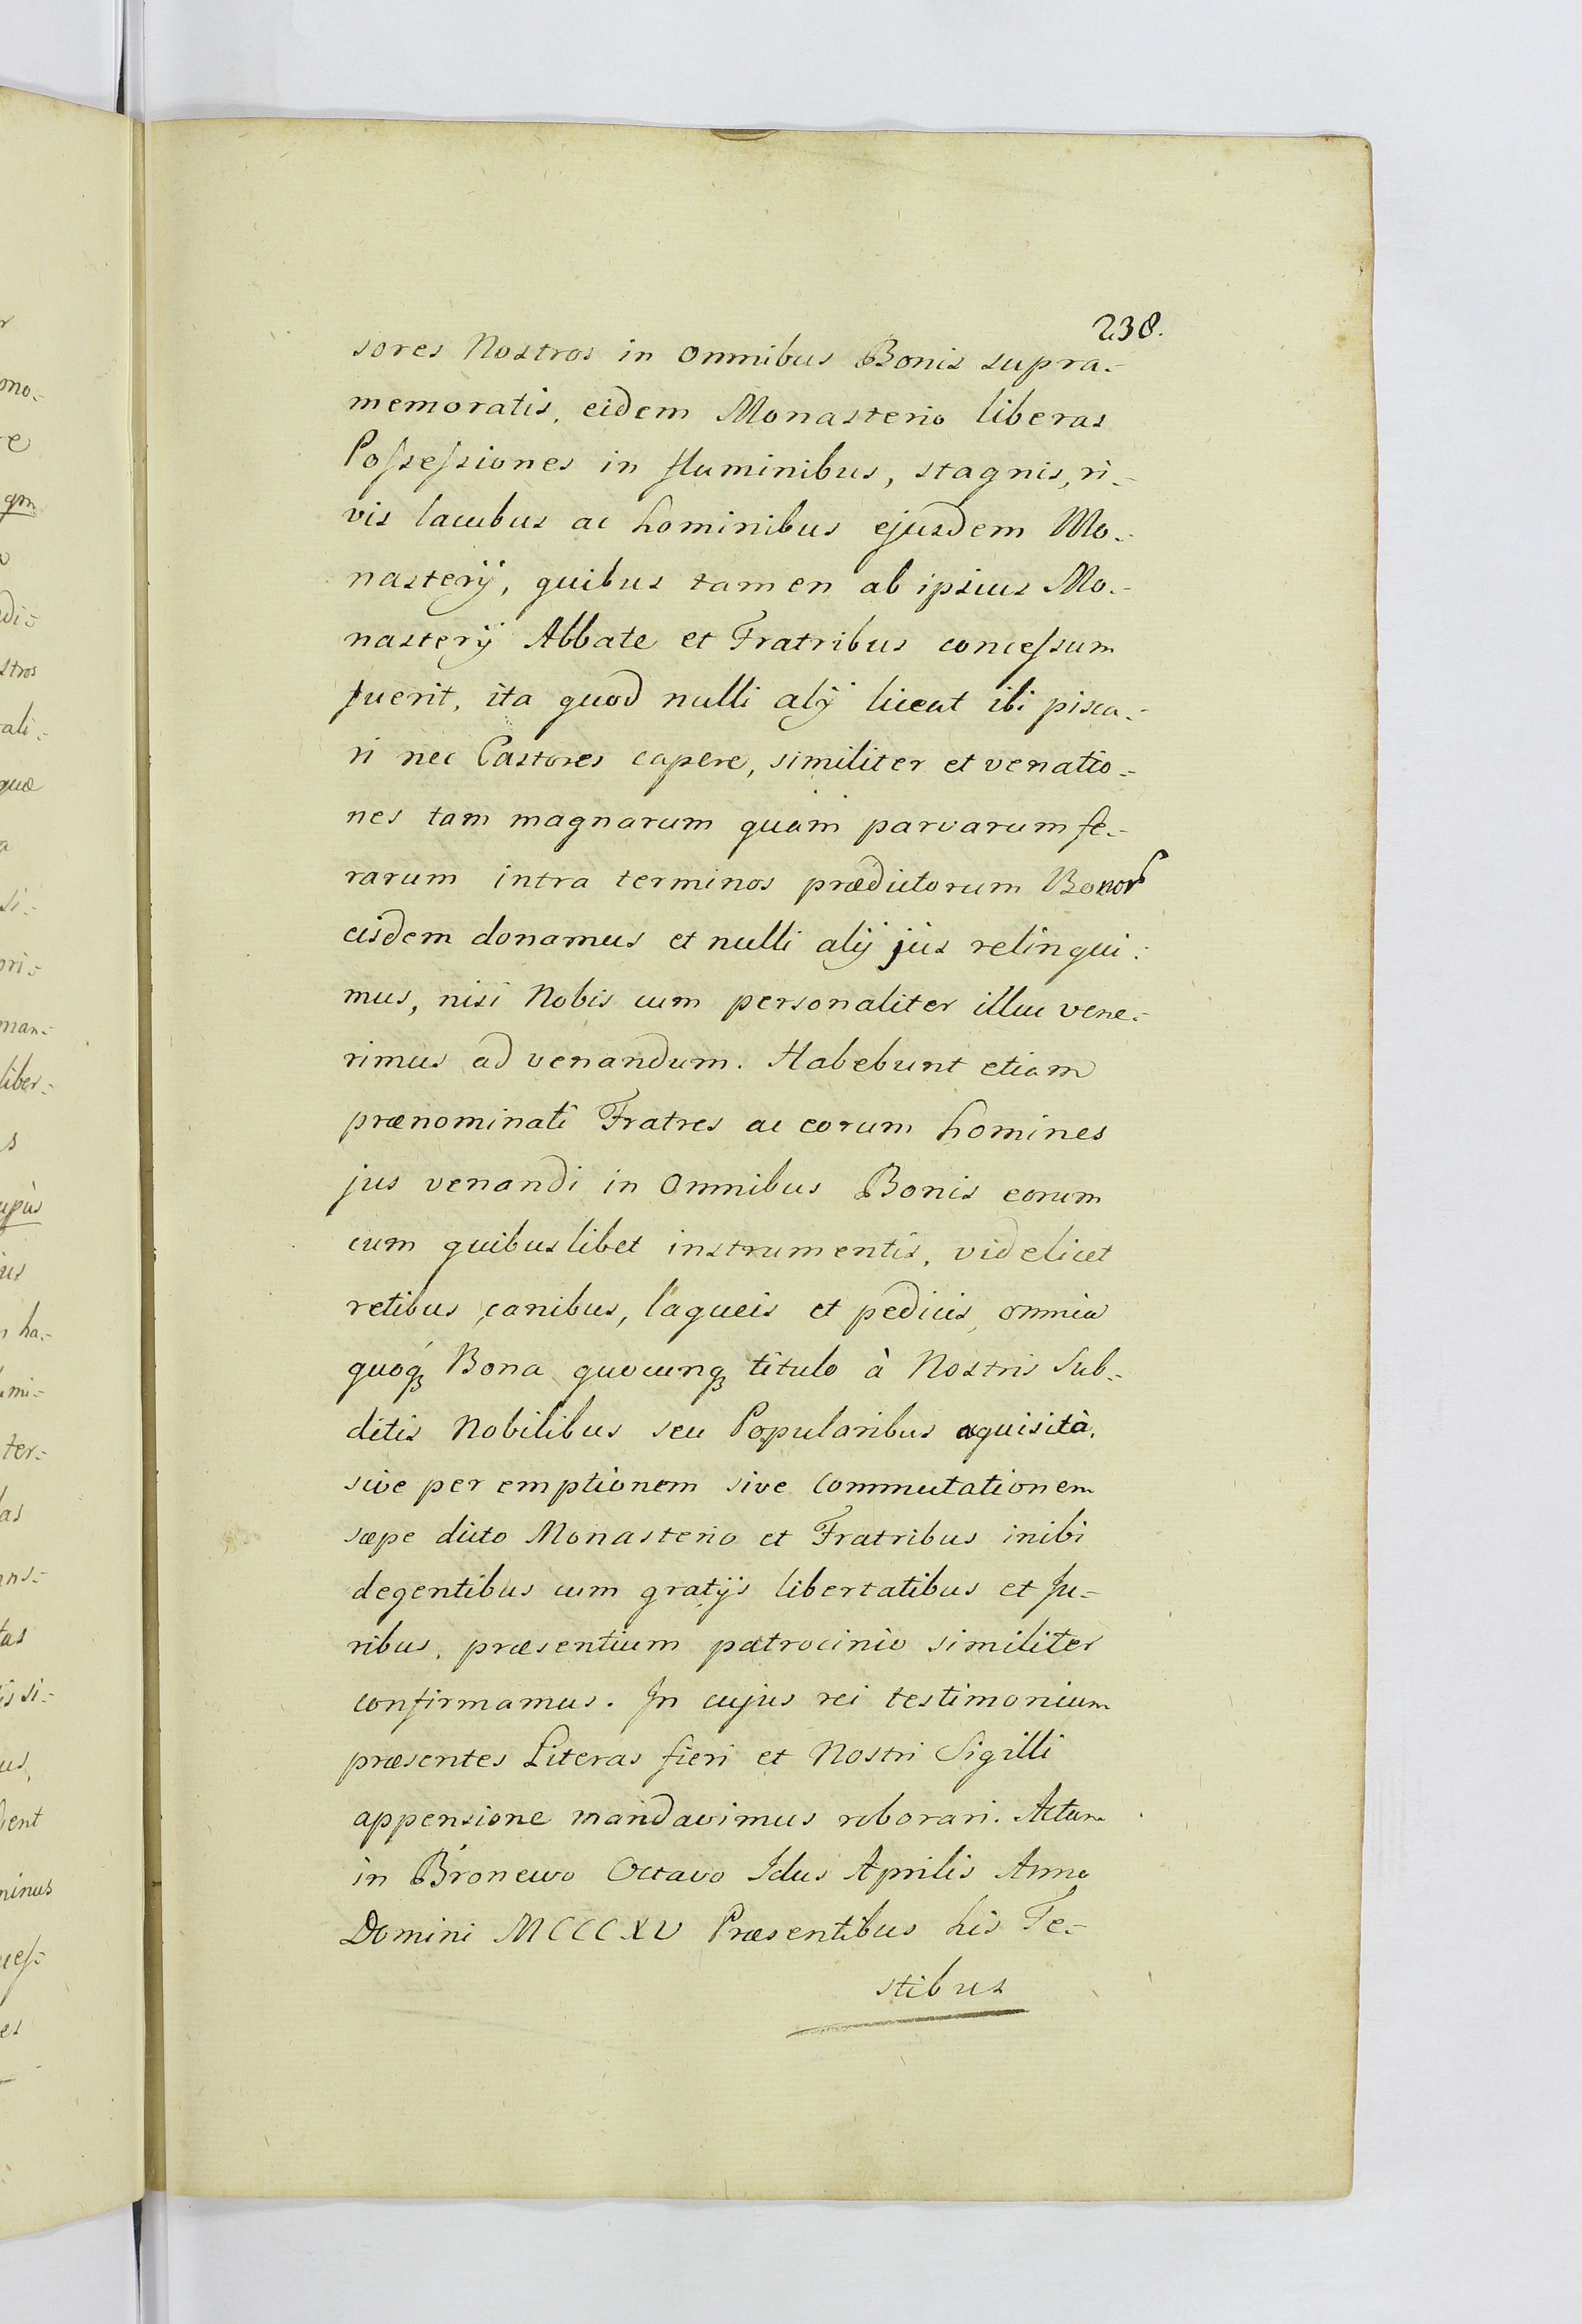 238.
sores Nostros in omnibus Bonis supra-
memoratis, eidem Monasterio liberas
Poſseſsiones in fluminibus, stagnis, ri-
vis lacubus ac hominibus ejusdem Mo-
nasterÿ, quibus tamen ab ipsius Mo-
nasterÿ Abbate et Fratribus conceſsum
fuerit, ita quod nulli alÿ liceat ibi pisca-
ri nec Castores capere, similiter et venatio-
nes tam magnarum quam parvarum fe-
rarum intra terminos prædictorum Bonor
eisdem donamus et nulli alÿ jus relinqui-
mus, nisi Nobis cum personaliter illuc vene-
rimus ad venandum. Habebunt etiam
prænominati Fratres ac eorum homines
jus venandi in omnibus Bonis eorum
cum quibuslibet instrumentis, videlicet
retibus, canibus, laqueis et pedicis, omnia
quoqꝫ Bona quocunqꝫ titulo à Nostris Sub-
ditis Nobilibus seu Popularibus aquisita,
sive per emptionem sive commutationem
sæpe dicto Monasterio et Fratribus inibi
degentibus cum gratÿs libertatibus et Ju-
ribus, præsentium patrocinio similiter
confirmamus. In cujus rei testimonium
præsentes Literas fieri et Nostri Sigilli
appensione mandavimus roborari. Actum
in Bronewo Octavo Idus Aprilis Anno
Domini MCCCXV Præsentibus his Te-
stibus